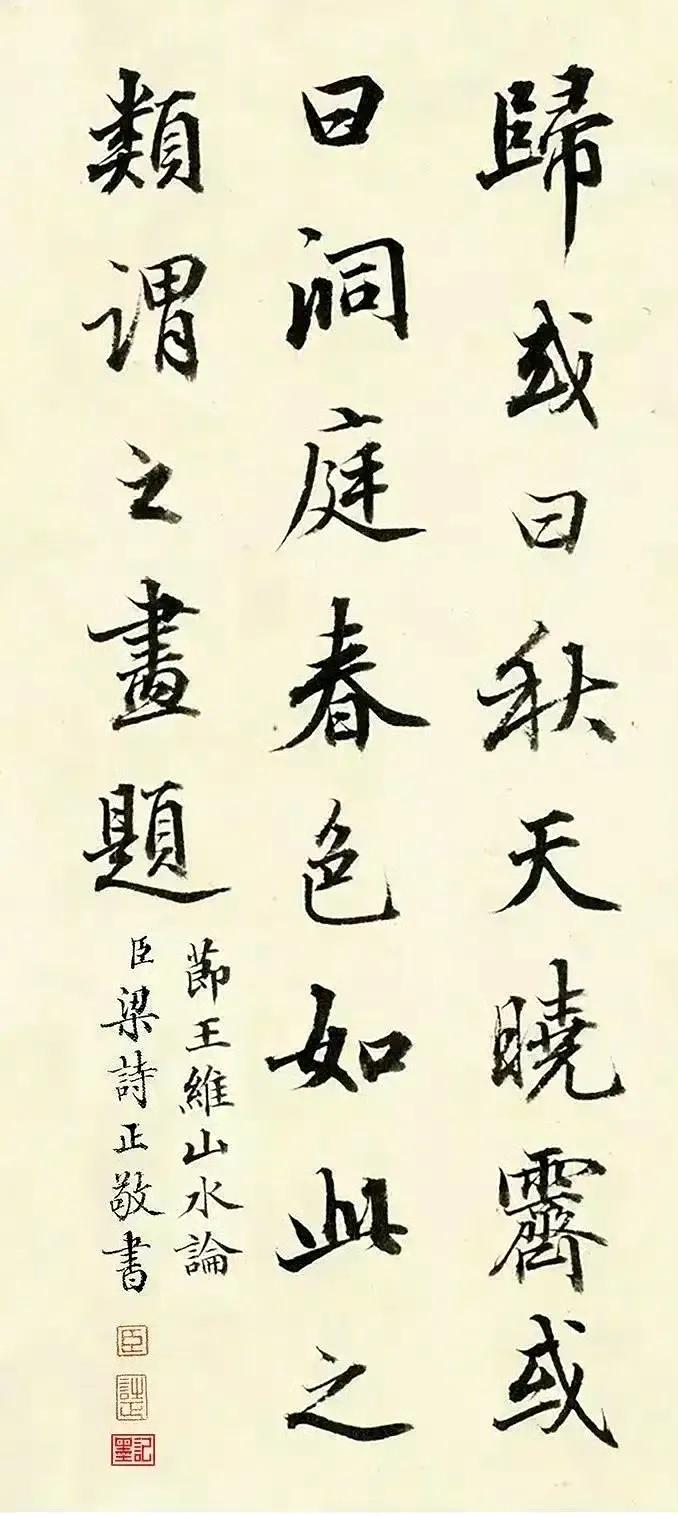 歸或曰秋天曉霽或
曰洞庭春色如此之
類謂之畫題
節王維山水論
臣梁詩正敬書
臣
詩正
墨記